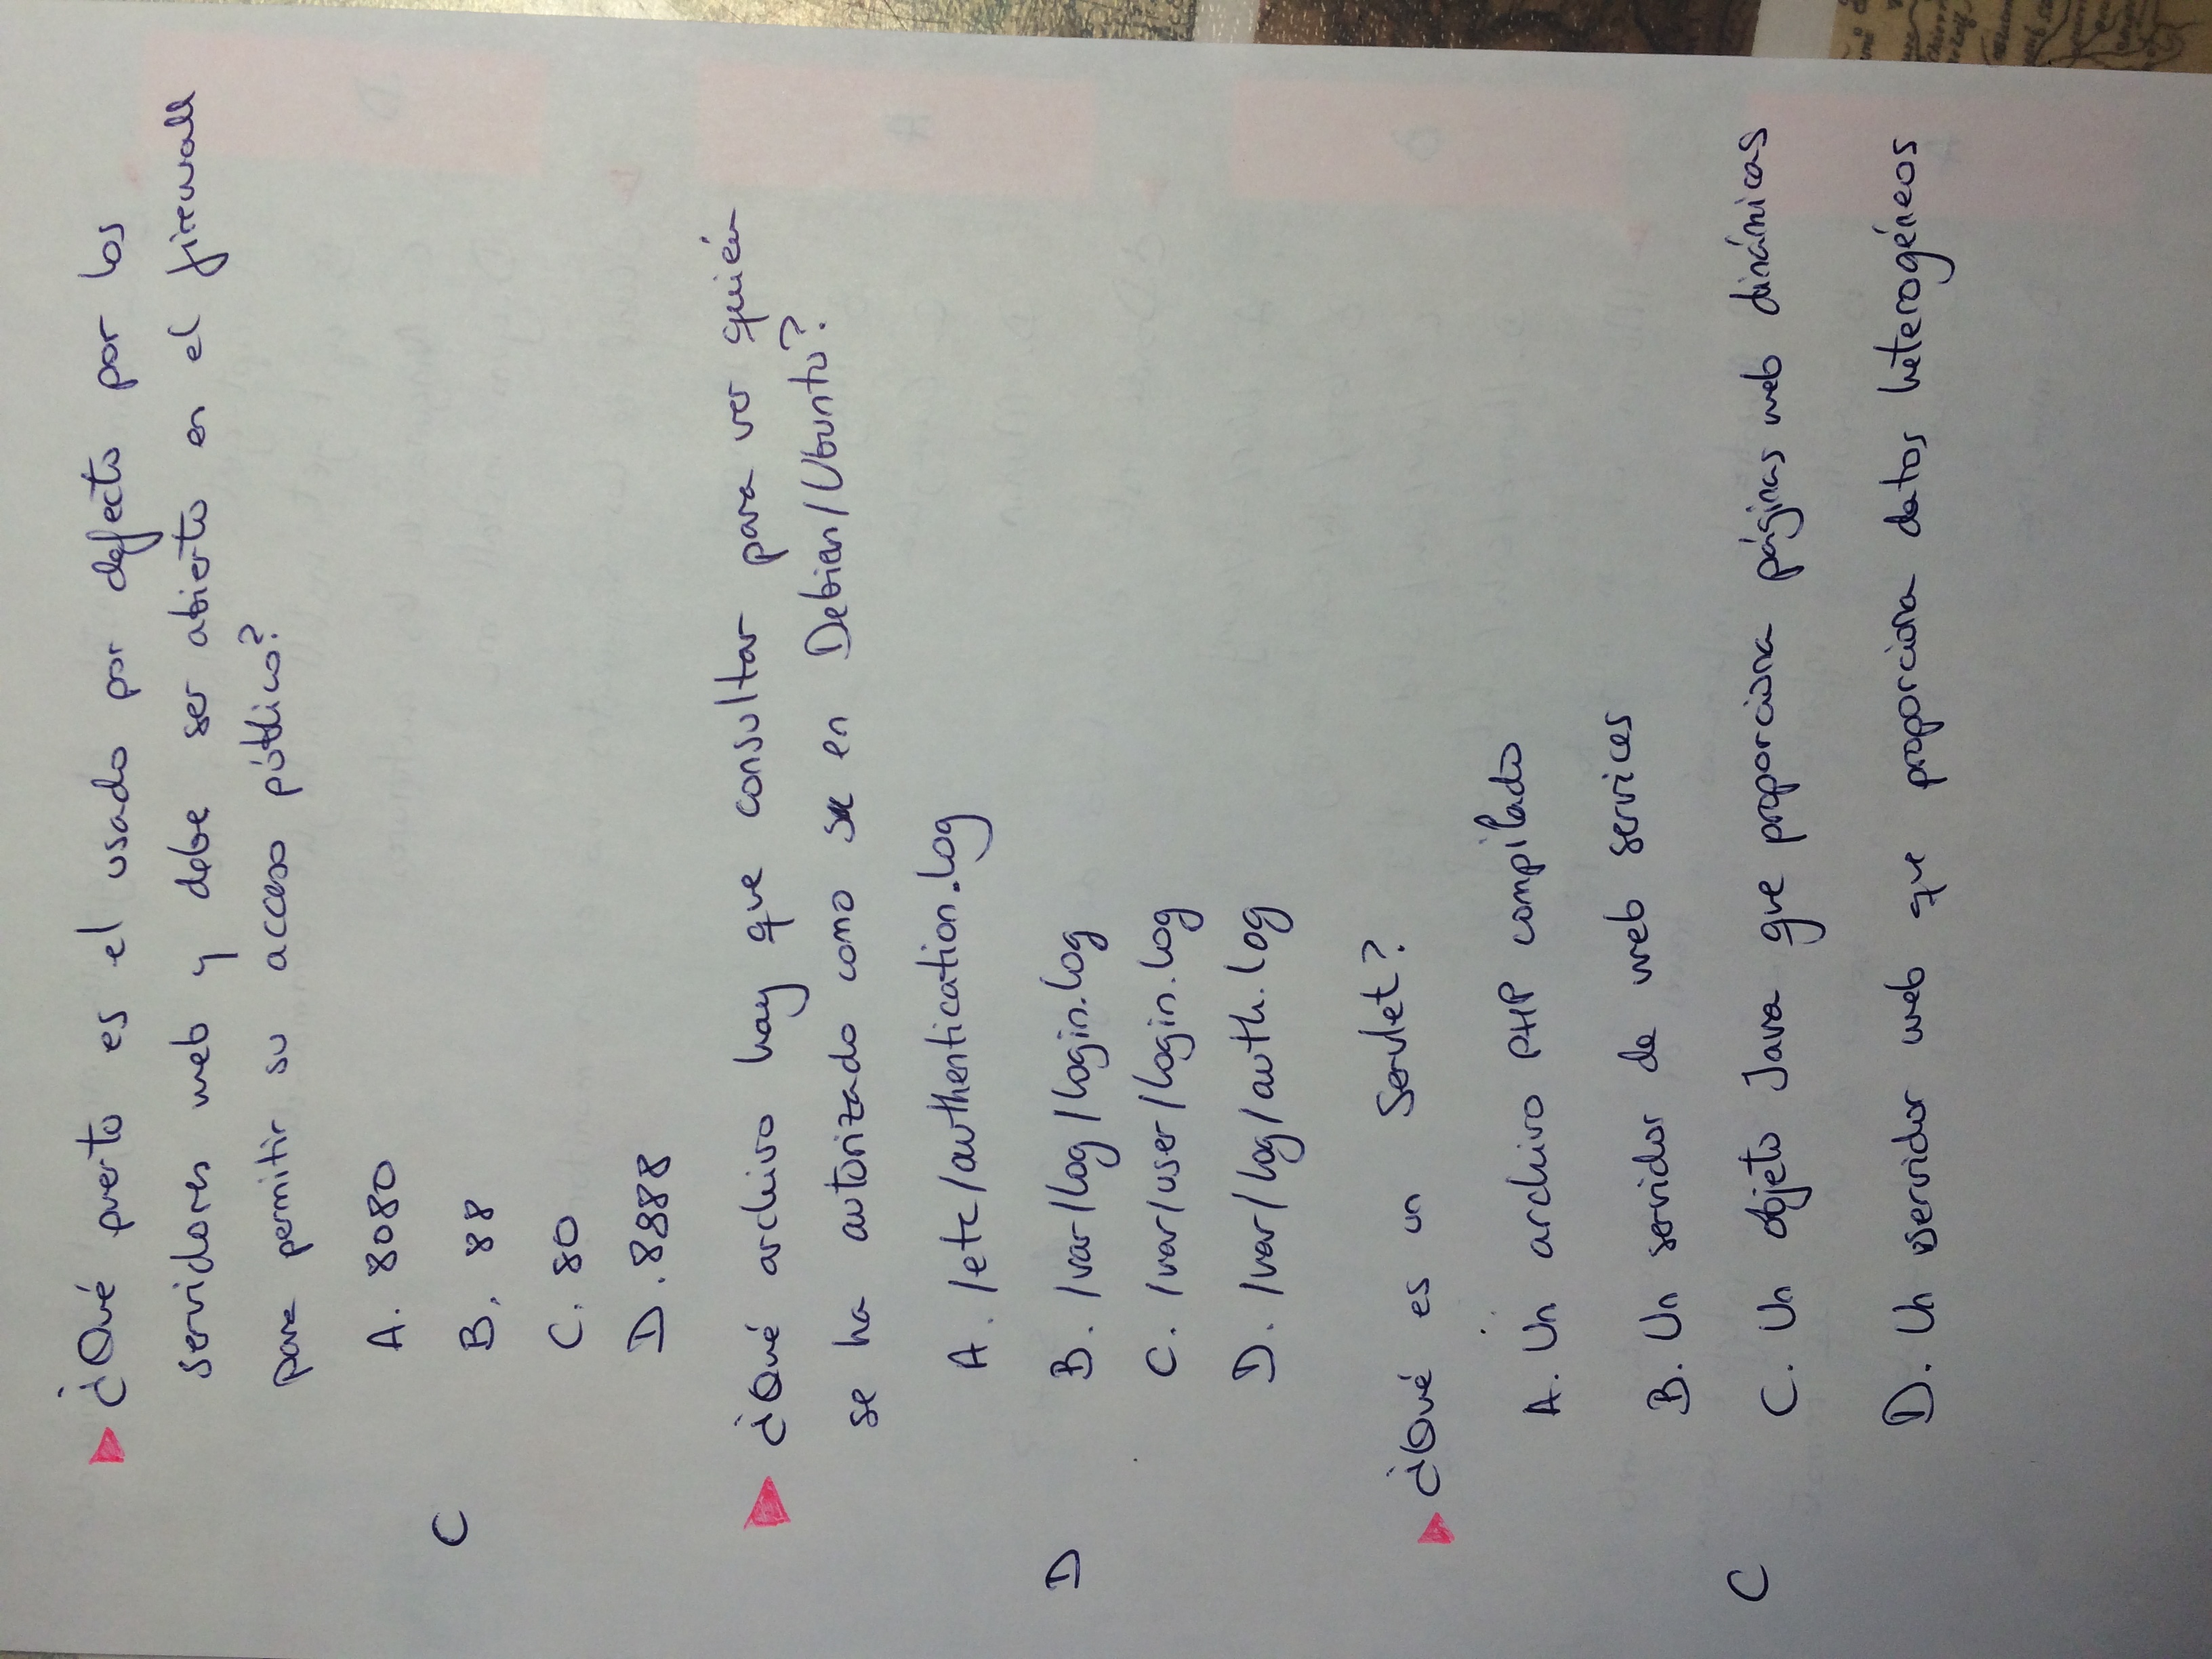 ¿Qué puerto es el usado por defecto por los
servidores web y debe ser abierto en el firewall
para permitir su acceso público?
A. 8080
C
B. 88
C. 80
D. 8888
¿Qué archivo hay que consultar para ver quién
se ha autorizado como su en Debian/Ubuntu?
A. /etc/authentication.log
D
B. /var/log/login.log
C. /var/user/login.log
D. /var/log/auth.log
¿Qué es un Servlet?
A. Un archivo PHP compilado
B. Un servidor de web services
C
C. Un objeto Java que proporciona páginas web dinámicas
D. Un servidor web que proporciona datos heterogéneos